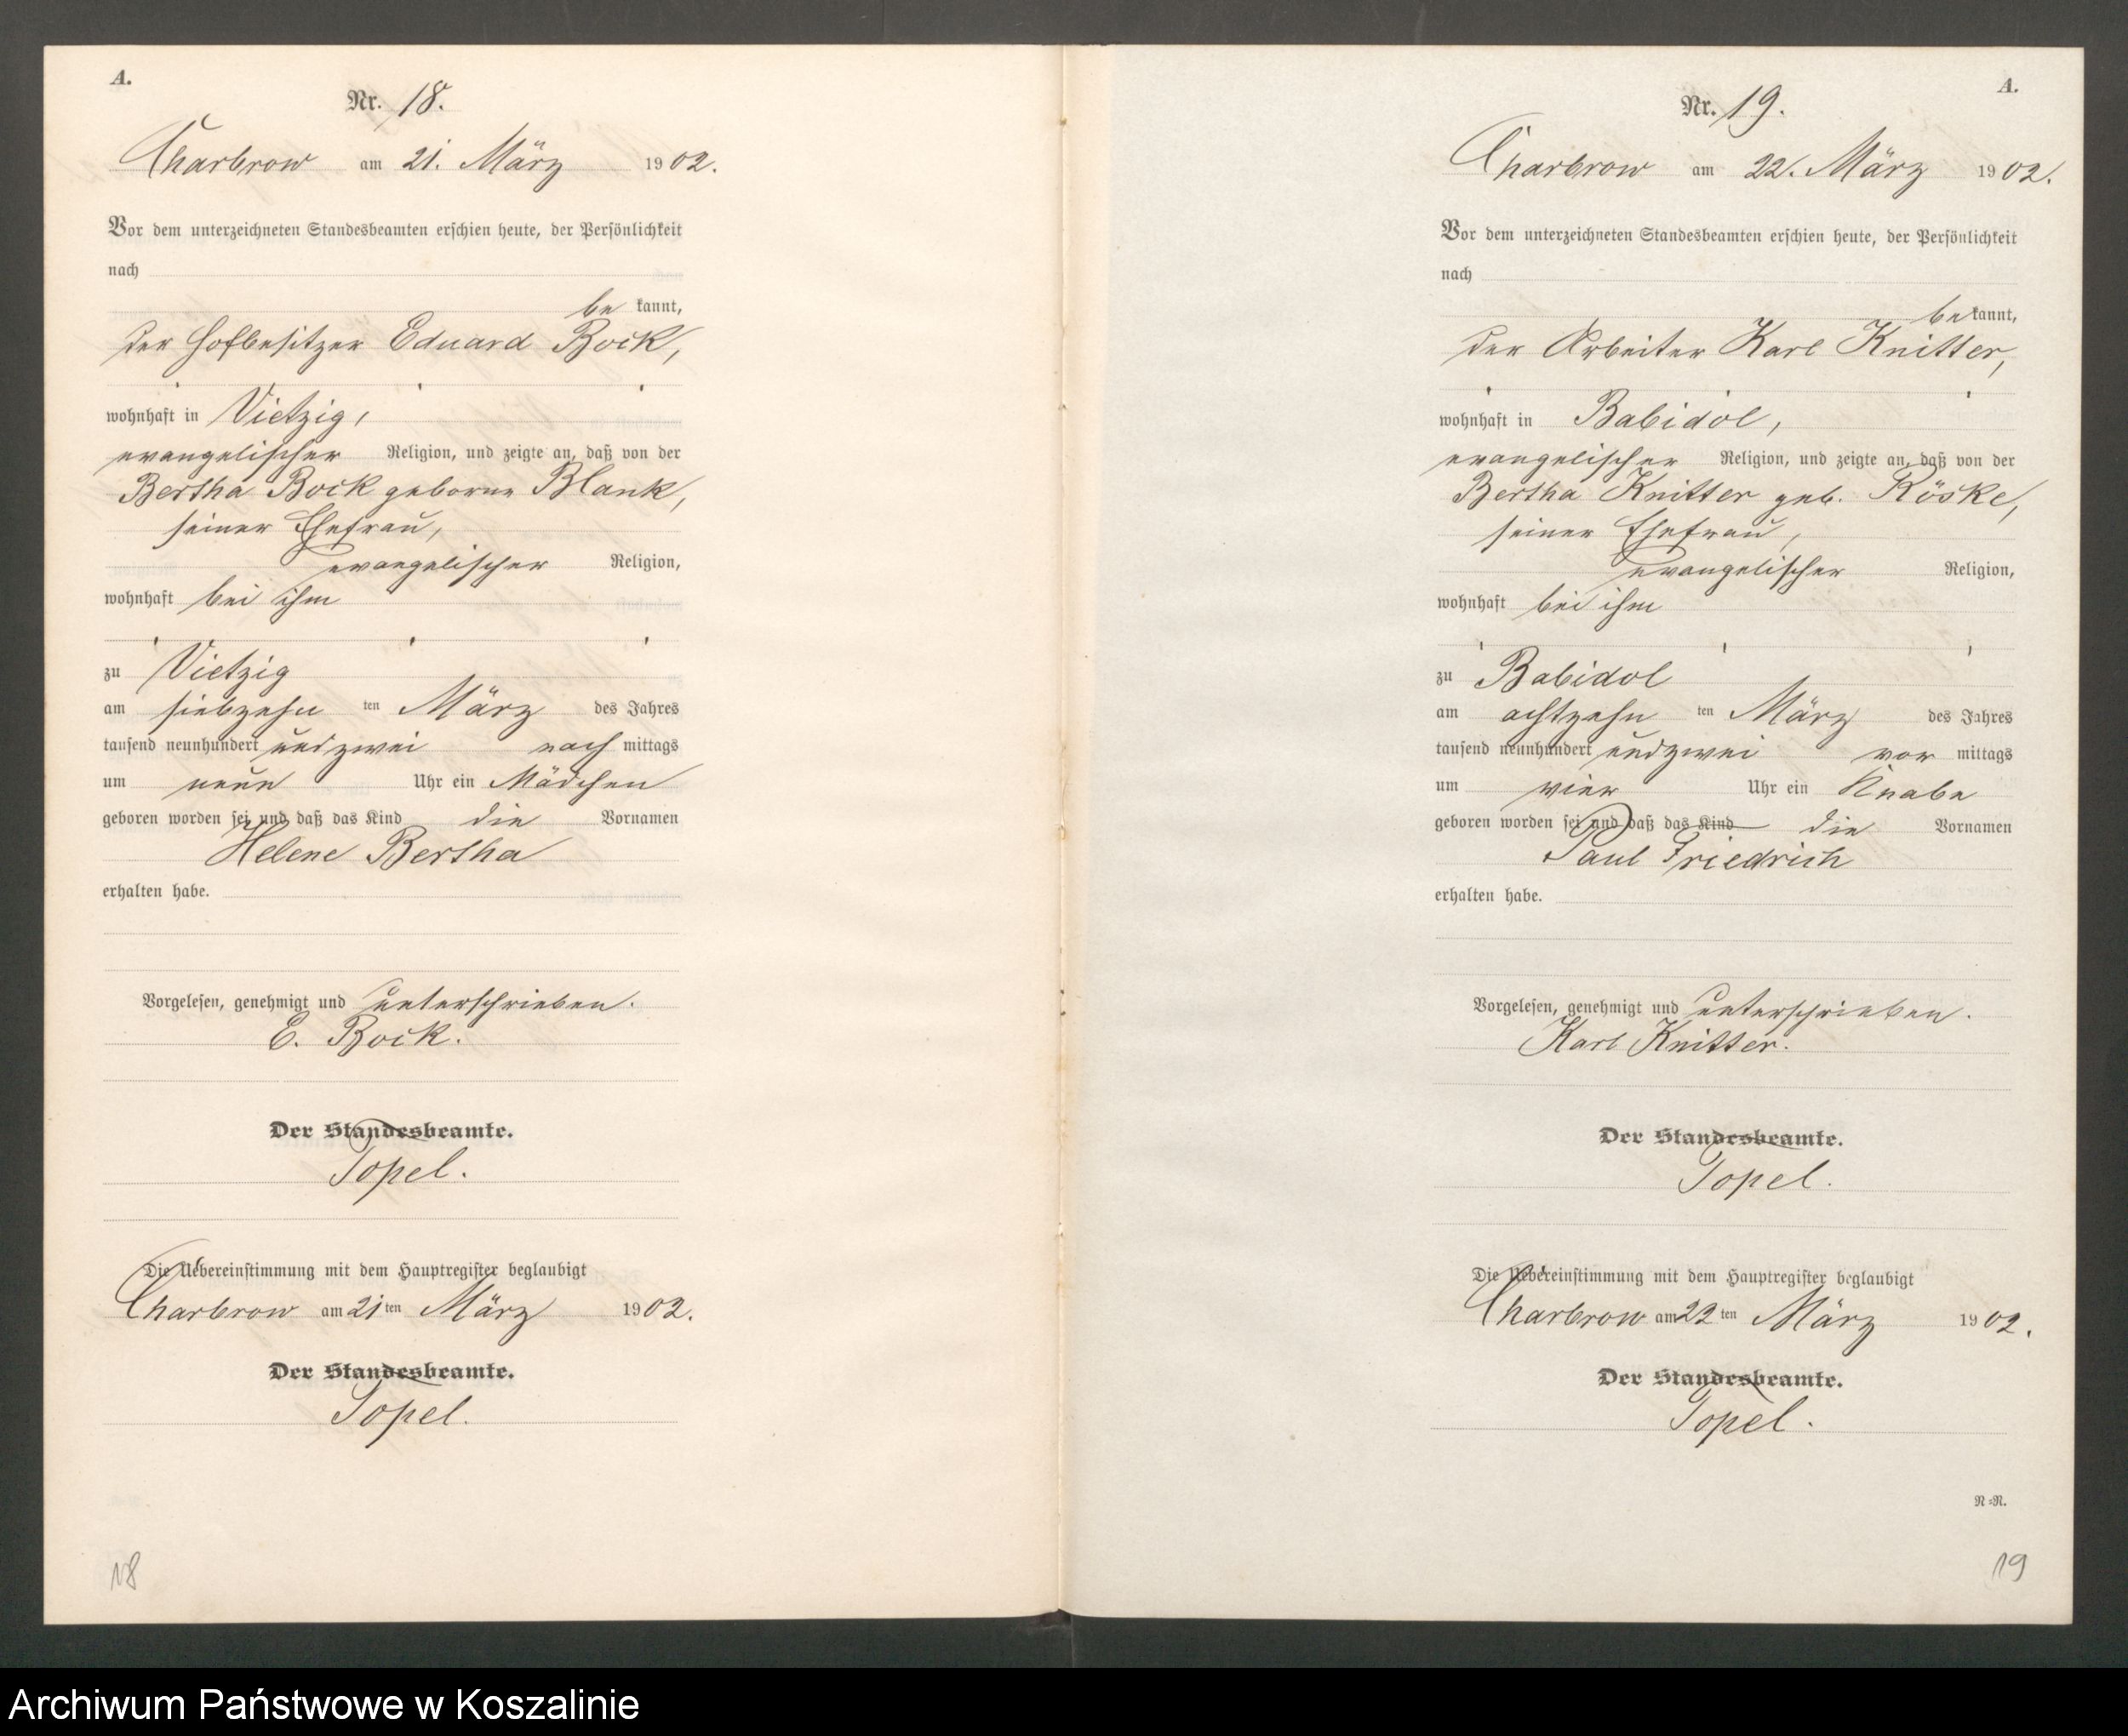 A.
Nr. 18.
Charbrow am 21. März 1902.
Vor dem unterzeichneten Standesbeamten erschien heute, der Persönlichkeit
nach
be kannt,
der Hofbesitzer Eduard Bock,
wohnhaft in Vietzig,
evangelischer Religion, und zeigte an, daß von der
Bertha Bock geborne Blank,
seiner Ehefrau,
evangelischer Religion,
wohnhaft bei ihm
zu Vietzig
am siebzehn ten März des Jahres
tausend neunhundert und zwei nach mittags
um neun Uhr ein Mädchen
geboren worden sei und daß das Kind die Vornamen
Helene Bertha
erhalten habe.
Vorgelesen, genehmigt und unterschrieben.
E. Bock.
Der Standesbeamte.
Topel.
Die Uebereinstimmung mit dem Hauptregister beglaubigt
Charbrow am 21 ten März 1902.
Der Standesbeamte.
Topel.
18
A.
Nr. 19.
Charbrow am 22. März 1902.
Vor dem unterzeichneten Standesbeamten erschien heute, der Persönlichkeit
nach
be kannt,
der Arbeiter Karl Knitter,
wohnhaft in Babidol,
evangelischer Religion, und zeigte an, daß von der
Bertha Knitter geb. Köske,
seiner Ehefrau,
evangelischer Religion,
wohnhaft bei ihm
zu Babidol
am achtzehn ten März des Jahres
tausend neunhundert und zwei vor mittags
um vier Uhr ein Knabe
geboren worden sei und daß das Kind die Vornamen
Paul Friedrich
erhalten habe.
Vorgelesen, genehmigt und unterschrieben.
Karl Knitter.
Der Standesbeamte.
Topel.
Die Uebereinstimmung mit dem Hauptregister beglaubigt
Charbrow am 22 ten März 1902.
Der Standesbeamte.
Topel.
N=N.
19
Archiwum Państwowe w Koszalinie